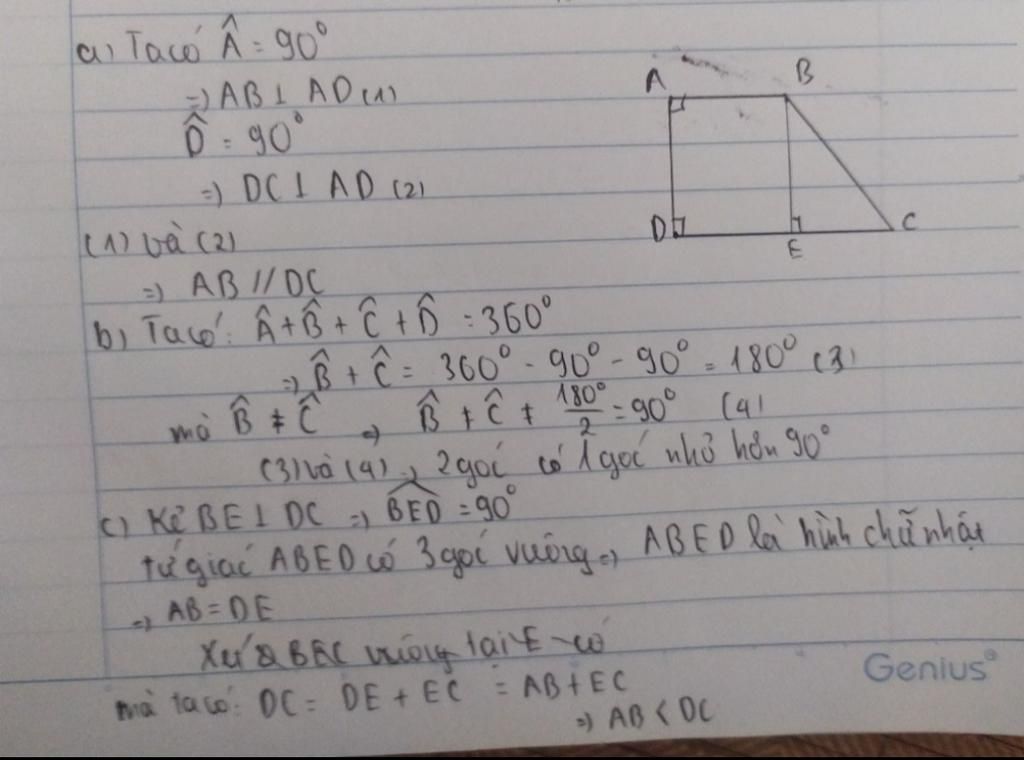 a) Ta có Â = 90°
=) AB ⊥ AD (1)
D̂ = 90°
=) DC ⊥ AD (2)
(1) và (2)
=) AB // DC
b) Ta có: Â + B̂ + Ĉ + D̂ = 360°
=) B̂ + Ĉ = 360° - 90° - 90° = 180° (3)
mà B̂ ≠ Ĉ =) B̂ ≠ Ĉ ≠ 180°/2 = 90° (4)
(3) và (4) =) 2 góc có 1 góc nhỏ hơn 90°
c) Kẻ BE ⊥ DC =) BED̂ = 90°
tứ giác ABED có 3 góc vuông =) ABED là hình chữ nhật
=) AB = DE
Xét Δ BEC vuông tại E có
mà ta có: DC = DE + EC = AB + EC
=) AB < DC
A
B
D
E
C
Genius